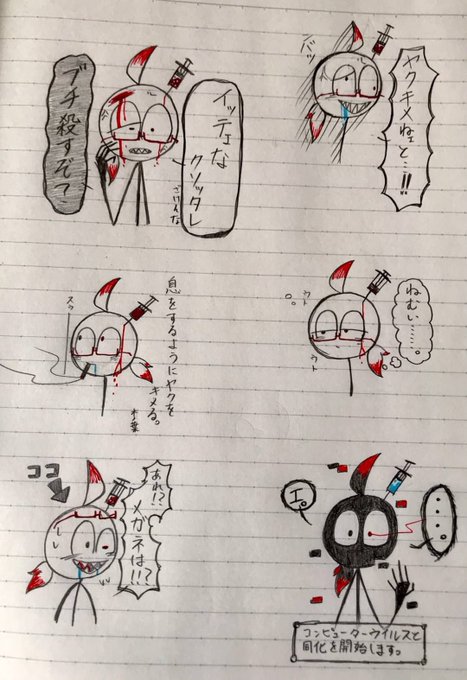 イッテェな
クソッタレ
ブチ殺すぞて
バッ
ヤクキメねェと…!!
スゥ
息をするようにヤクを
キメる。
ねむい……。
ウト
ウト
ココ
あれ!?
メガネは!!?
エ。
....
コンピューターウイルスと
同化を開始します。